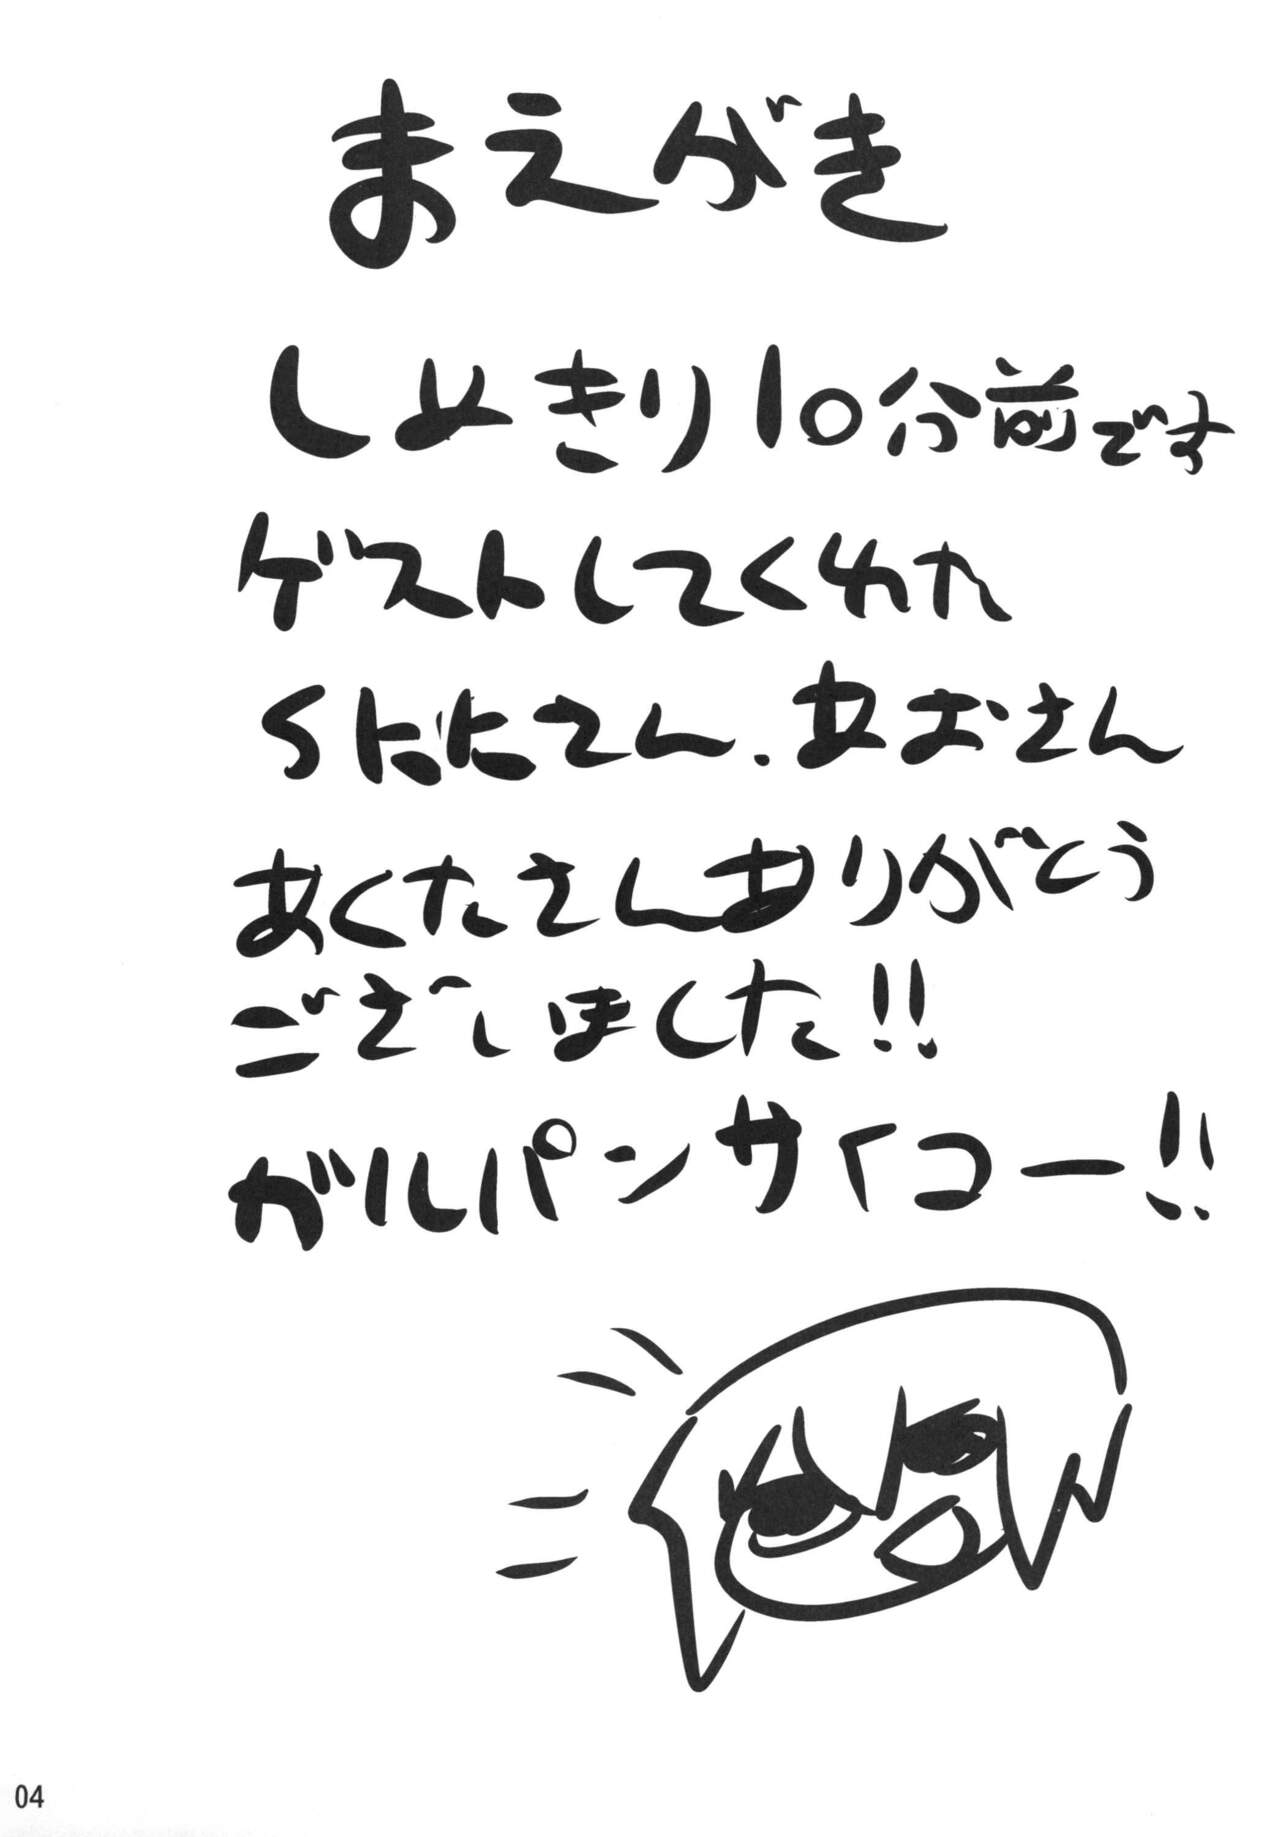 まえがき
しめきり10分前です
ゲストしてくれた
skkさん、あおさん
あくたさんありがとう
ございました!!
ガルパンサイコー!!
04